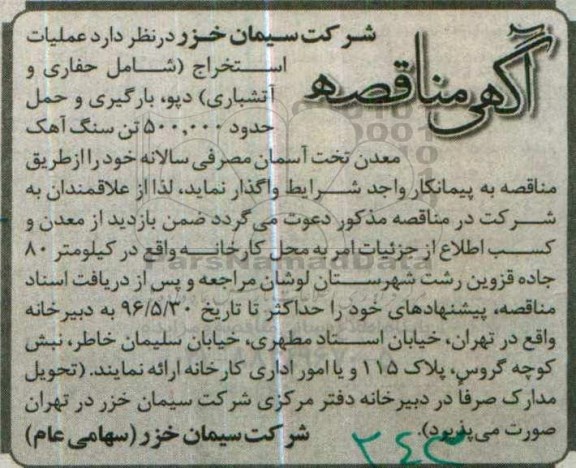 آگهی مناقصه
شرکت سیمان خزر درنظر دارد عملیات
استخراج (شامل حفاری و
آتشباری) دپو، بارگیری و حمل
حدود ۵۰۰,۰۰۰ تن سنگ آهک
معدن تخت آسمان مصرفی سالانه خود را از طریق
مناقصه به پیمانکار واجد شرایط واگذار نماید، لذا از علاقمندان به
شرکت در مناقصه مذکور دعوت می گردد ضمن بازدید از معدن و
کسب اطلاع از جزئیات امر به محل کارخانه واقع در کیلومتر ۸۰
جاده قزوین رشت شهرستان لوشان مراجعه و پس از دریافت اسناد
مناقصه، پیشنهادهای خود را حداکثر تا تاریخ ۹۶/۵/۳۰ به دبیرخانه
واقع در تهران، خیابان استاد مطهری، خیابان سلیمان خاطر، نبش
کوچه گروس، پلاک ۱۱۵ و یا امور اداری کارخانه ارائه نمایند. (تحویل
مدارک صرفاً در دبیرخانه دفتر مرکزی شرکت سیمان خزر در تهران
صورت می پذیرد).
شرکت سیمان خزر (سهامی عام)
ParsNamadData